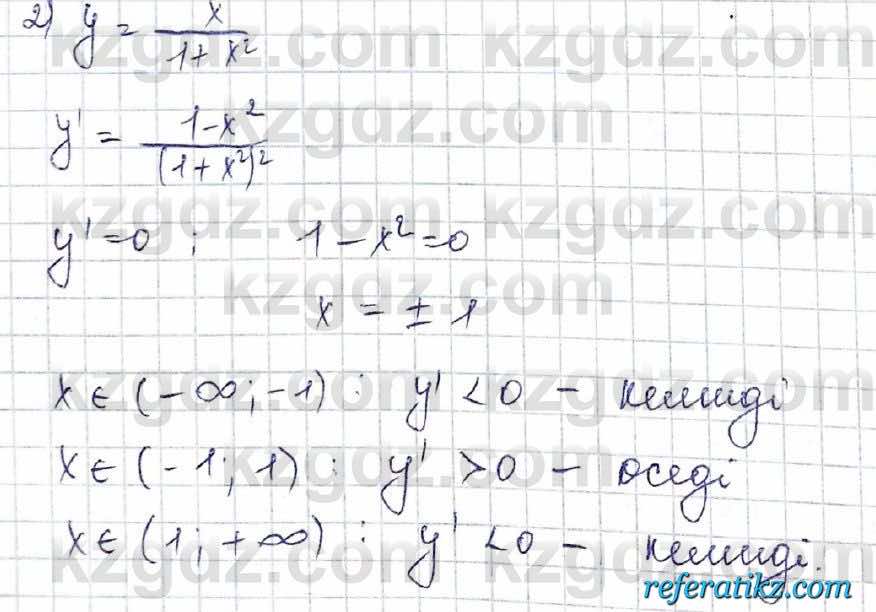 2) y = x / (1 + x²)
y' = (1 - x²) / (1 + x²)²
y' = 0 ; 1 - x² = 0
x = ± 1
x ∈ (-∞; -1) : y' < 0 - кемиді
x ∈ (-1; 1) : y' > 0 - өседі
x ∈ (1; +∞) : y' < 0 - кемиді.
kzgdz.com kzgdz.com
kzgdz.com
kzgdz.com kzgdz.com
kzgdz.com
kzgdz.com kzgdz.com
kzgdz.com
kzgdz.com kzgdz.com
referatikz.com